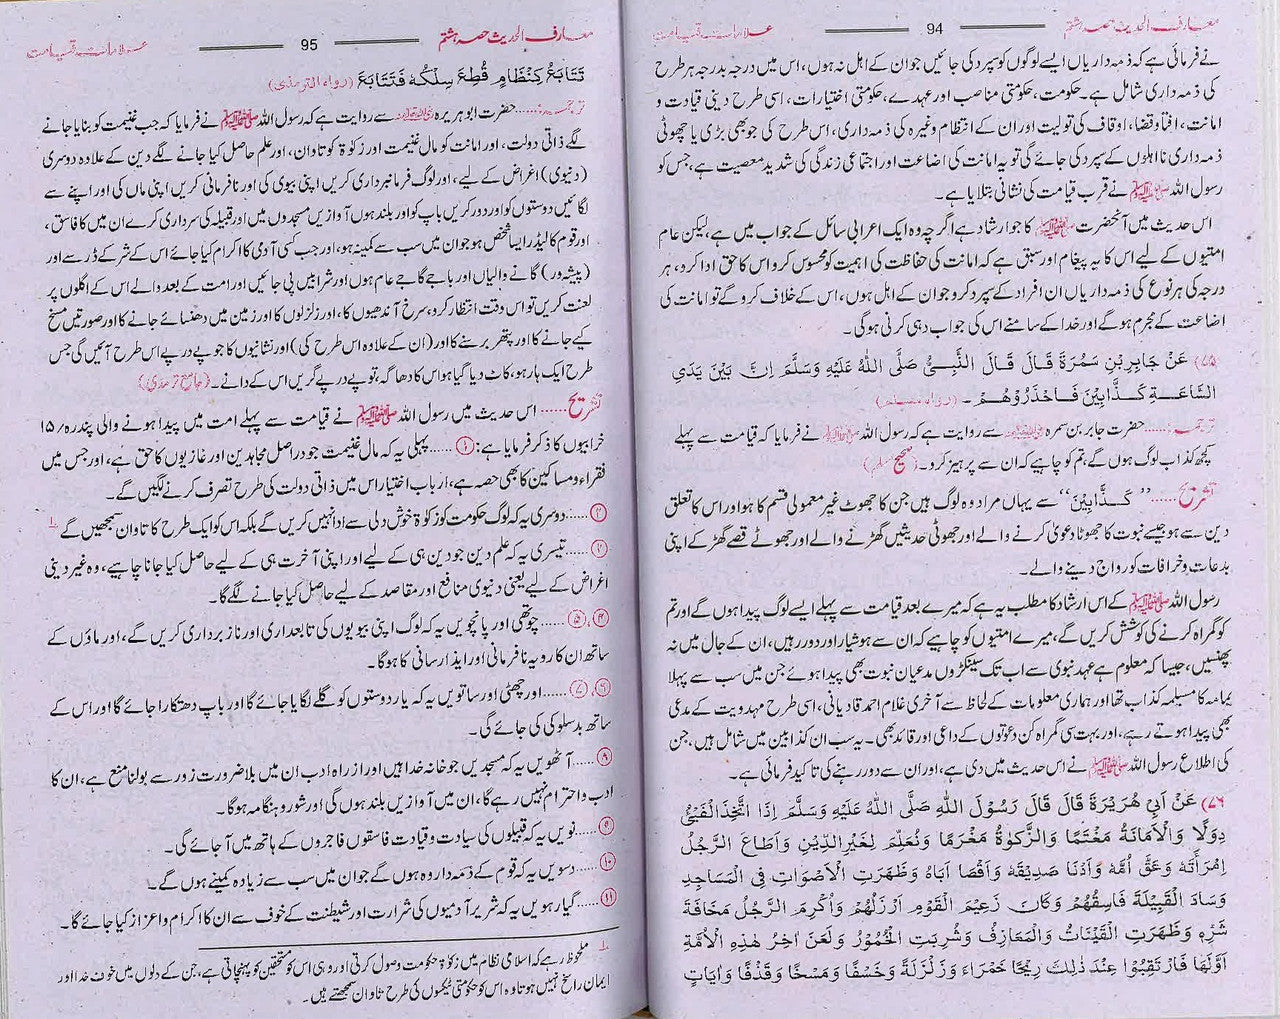 معارف الحدیث حصہ ہشتم
94
علامات قیامت
نے فرمائی ہے کہ ذمہ داریاں ایسے لوگوں کو سپرد کی جائیں جو ان کے اہل نہ ہوں، اس میں درجہ بدرجہ ہر طرح
کی ذمہ داری شامل ہے۔ حکومت، حکومتی مناصب اور عہدے، حکومتی اختیارات، اسی طرح دینی قیادت و
امانت، افتاء وقضا، اوقاف کی تولیت اور ان کے انتظام وغیرہ کی ذمہ داری، اس طرح کی جو بھی بڑی یا چھوٹی
ذمہ داری نااہلوں کے سپرد کی جائے گی تو یہ امانت کی اضاعت اور اجتماعی زندگی کی شدید معصیت ہے، جس کو
رسول اللہ ﷺ نے قرب قیامت کی نشانی بتلایا ہے۔
اس حدیث میں آنحضرت ﷺ کا جو ارشاد ہے اگرچہ وہ ایک اعرابی سائل کے جواب میں ہے، لیکن عام
امتیوں کے لیے اس کا یہ پیغام اور سبق ہے کہ امانت کی حفاظت کی اہمیت کو محسوس کرو اس کا حق ادا کرد، ہر
درجہ کی ہر نوع کی ذمہ داریاں ان افراد کے سپرد کرو جو ان کے اہل ہوں، اس کے خلاف کرو گے تو امانت کی
اضاعت کے مجرم ہو گے اور خدا کے سامنے اس کی جواب دہی کرنی ہوگی۔
(۷۵) عَنْ جَابِرِبْنِ سَمُرَةَ قَالَ قَالَ النَّبِيُّ صَلَّى اللهُ عَلَيْهِ وَسَلَّمَ اِنَّ بَيْنَ يَدَيِ
السَّاعَةِ كَذَّابِيْنَ فَاحْذَرُوْهُمْ۔ (رواه مسلم)
ترجمہ...... حضرت جابر بن سمرہ ؓ سے روایت ہے کہ رسول اللہ ﷺ نے فرمایا کہ قیامت سے پہلے
کچھ کذاب لوگ ہوں گے، تم کو چاہیے کہ ان سے پرہیز کرو۔ (صحیح مسلم)
تشریح...... ’’كَذَّابِيْنَ‘‘ سے یہاں مراد وہ لوگ ہیں جن کا جھوٹ غیر معمولی قسم کا ہو اور اس کا تعلق
دین سے ہو جیسے نبوت کا جھوٹا دعویٰ کرنے والے اور جھوٹی حدیثیں گھڑنے والے اور جھوٹے قصے گھڑ کے اپنی
بدعات و خرافات کو رواج دینے والے۔
رسول اللہ ﷺ کے اس ارشاد کا مطلب یہ ہے کہ میرے بعد قیامت سے پہلے ایسے لوگ پیدا ہوں گے اور تم
کو گمراہ کرنے کی کوشش کریں گے، میرے امتیوں کو چاہیے کہ ان سے ہوشیار اور دور رہیں، ان کے جال میں نہ
پھنسیں، جیسا کہ معلوم ہے عہد نبوی سے اب تک سینکڑوں مدعیان نبوت بھی پیدا ہوئے جن میں سب سے پہلا
یمامہ کا مسیلمہ کذاب تھا اور ہماری معلومات کے لحاظ سے آخری غلام احمد قادیانی، اسی طرح مہدویت کے مدعی
بھی پیدا ہوتے رہے، اور بہت سی گمراہ کن دعوتوں کے داعی اور قائد بھی۔ یہ سب ان کذابین میں شامل ہیں، جن
کی اطلاع رسول اللہ ﷺ نے اس حدیث میں دی ہے، اور ان سے دور رہنے کی تاکید فرمائی ہے۔
(۷۶) عَنْ اَبِىْ هُرَيْرَةَ قَالَ قَالَ رَسُوْلُ اللهِ صَلَّى اللهُ عَلَيْهِ وَسَلَّمَ اِذَا اتُّخِذَالْفَيْئُ
دِوَلًا وَالْاَمَانَةُ مَغْنَمًا وَالزَّكٰوةُ مَغْرَمًا وَتُعُلِّمَ لِغَيْرِالدِّيْنِ وَاَطَاعَ الرَّجُلُ
اِمْرَأَتَهٗ وَعَقَّ اُمَّهٗ وَاَدْنَا صَدِيْقَهٗ وَاَقْصَا اَبَاهُ وَظَهَرَتِ الْاَصْوَاتُ فِى الْمَسَاجِدِ
وَسَادَ الْقَبِيْلَةَ فَاسِقُهُمْ وَكَانَ زَعِيْمَ الْقَوْمِ اَرْذَلُهُمْ وَاُكْرِمَ الرَّجُلُ مَخَافَةَ
شَرِّهٖ وَظَهَرَتِ الْقَيْنَاتُ وَالْمَعَازِفُ وَشُرِبَتِ الْخُمُوْرُ وَلَعَنَ اٰخِرُ هٰذِهِ الْاُمَّةِ
اَوَّلَهَا فَارْتَقِبُوْا عِنْدَ ذٰلِكَ رِيْحًا حَمْرَاءَ وَزَلْزَلَةً وَخَسْفًا وَمَسْخًا وَقَذْفًا وَاٰيَاتٍ
معارف الحدیث حصہ ہشتم
95
علامات قیامت
تَتَابَعُ كَنِظَامٍ قُطِعَ سِلْكُهٗ فَتَتَابَعَ (رواه الترمذی)
ترجمہ...... حضرت ابوہریرہ ؓ سے روایت ہے کہ رسول اللہ ﷺ نے فرمایا کہ جب غنیمت کو بنایا جانے
لگے ذاتی دولت، اور امانت کو مال غنیمت اور زکوٰۃ کو تاوان، اور علم حاصل کیا جانے لگے دین کے علاوہ دوسری
(دنیوی) اغراض کے لیے، اور لوگ فرمانبرداری کریں اپنی بیوی کی اور نافرمانی کریں اپنی ماں کی اور اپنے سے
لگائیں دوستوں کو اور دور کریں باپ کو اور بلند ہوں آوازیں مسجدوں میں اور قبیلہ کی سرداری کرے ان میں کا فاسق،
اور قوم کا لیڈر ایسا شخص ہو جو ان میں سب سے کمینہ ہو، اور جب کسی آدمی کا اکرام کیا جائے اس کے شر کے ڈر سے اور
(پیشہ ور) گانے والیاں اور باجے گاجے عام ہوں اور شرابیں پی جائیں اور امت کے بعد والے اس کے اگلوں پر
لعنت کریں تو اس وقت انتظار کرو، سرخ آندھیوں کا، اور زلزلوں کا اور زمین میں دھنسائے جانے کا اور صورتیں مسخ
کیے جانے کا اور پتھر برسنے کا اور (ان کے علاوہ اس طرح کی) اور نشانیوں کا جو پے درپے اس طرح آئیں گی جس
طرح ایک ہار ہو، کاٹ دیا گیا ہو اس کا دھاگہ، تو پے درپے گریں اس کے دانے۔ (جامع ترمذی)
تشریح...... اس حدیث میں رسول اللہ ﷺ نے قیامت سے پہلے امت میں پیدا ہونے والی پندرہ/۱۵
خرابیوں کا ذکر فرمایا ہے: ①...... پہلی یہ کہ مال غنیمت جو دراصل مجاہدین اور غازیوں کا حق ہے، اور جس میں
فقراء و مساکین کا بھی حصہ ہے، ارباب اختیار اس میں ذاتی دولت کی طرح تصرف کرنے لگیں گے۔
②...... دوسری یہ کہ لوگ حکومت کو زکوٰۃ خوش دلی سے ادا نہیں کریں گے بلکہ اس کو ایک طرح کا تاوان سمجھیں گے ۱
③...... تیسری یہ کہ علم دین جو دین ہی کے لیے اور اپنی آخرت ہی کے لیے حاصل کیا جانا چاہیے، وہ غیر دینی
اغراض کے لیے یعنی دنیوی منافع اور مقاصد کے لیے حاصل کیا جانے لگے گا۔
④، ⑤...... چوتھی اور پانچویں یہ کہ لوگ اپنی بیویوں کی تابعداری اور ناز برداری کریں گے، اور ماؤں کے
ساتھ ان کا رویہ نافرمانی اور ایذا رسانی کا ہوگا۔
⑥، ⑦...... اور چھٹی اور ساتویں یہ کہ یار دوستوں کو گلے لگایا جائے گا اور باپ دھتکارا جائے گا اور اس کے
ساتھ بدسلوکی کی جائے گی۔
⑧...... آٹھویں یہ کہ مسجدیں جو خانہ خدا ہیں اور از راہ ادب ان میں بلا ضرورت زور سے بولنا منع ہے، ان کا
ادب و احترام نہیں رہے گا، ان میں آوازیں بلند ہوں گی اور شور و ہنگامہ ہوگا۔
⑨...... نویں یہ کہ قبیلوں کی سیادت و قیادت فاسقوں فاجروں کے ہاتھ میں آجائے گی۔
⑩...... دسویں یہ کہ قوم کے ذمہ دار وہ ہوں گے جو ان میں سب سے زیادہ کمینے ہوں گے۔
⑪...... گیارہویں یہ کہ شریر آدمیوں کی شرارت اور شیطنت کے خوف سے ان کا اکرام و اعزاز کیا جائے گا۔
۱ ملحوظ رہے کہ اسلامی نظام میں زکوٰۃ حکومت وصول کرتی اور وہی اس کو مستحقین کو پہنچاتی ہے، جن کے دلوں میں خوف خدا اور
ایمان راسخ نہیں ہوتا وہ اس کو حکومتی ٹیکسوں کی طرح تاوان سمجھتے ہیں۔